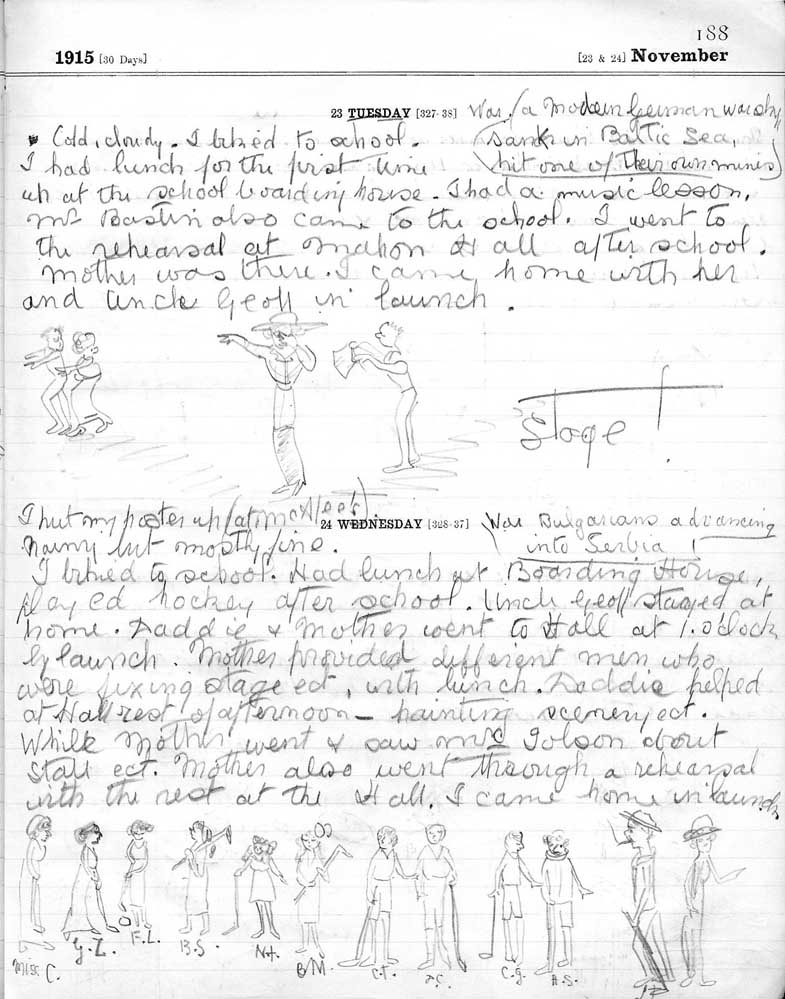 188
1915 [30 Days] [23 & 24] November
23 TUESDAY [327-38] War. (a Modern German warship
Cold, cloudy. I biked to school. sank in Baltic Sea,
I had lunch for the first time hit one of their own mines)
up at the school boarding house. I had a music lesson.
Mr Bastin also came to the school. I went to
the rehearsal at Mahon Hall after school.
Mother was there. I came home with her
and Uncle Geoff in launch.
Stage!
I put my poster up (at
24 WEDNESDAY [328-37] War Bulgarians advancing
Rainy but mostly fine. into Serbia!
I biked to school. Had lunch at Boarding House,
played hockey after school. Uncle Geoff stayed at
home. Daddie & Mother went to Hall at 1. o'clock
by launch. Mother provided different men who
were fixing stage ect, with lunch. Daddie helped
at Hall rest of afternoon - painting scenery ect.
While Mother went & saw about
stall ect. Mother also went through a rehearsal
with the rest at the Hall. I came home in launch
Miss C. G.L. F.L. B.S. B.M. C.T. C.G. A.S.